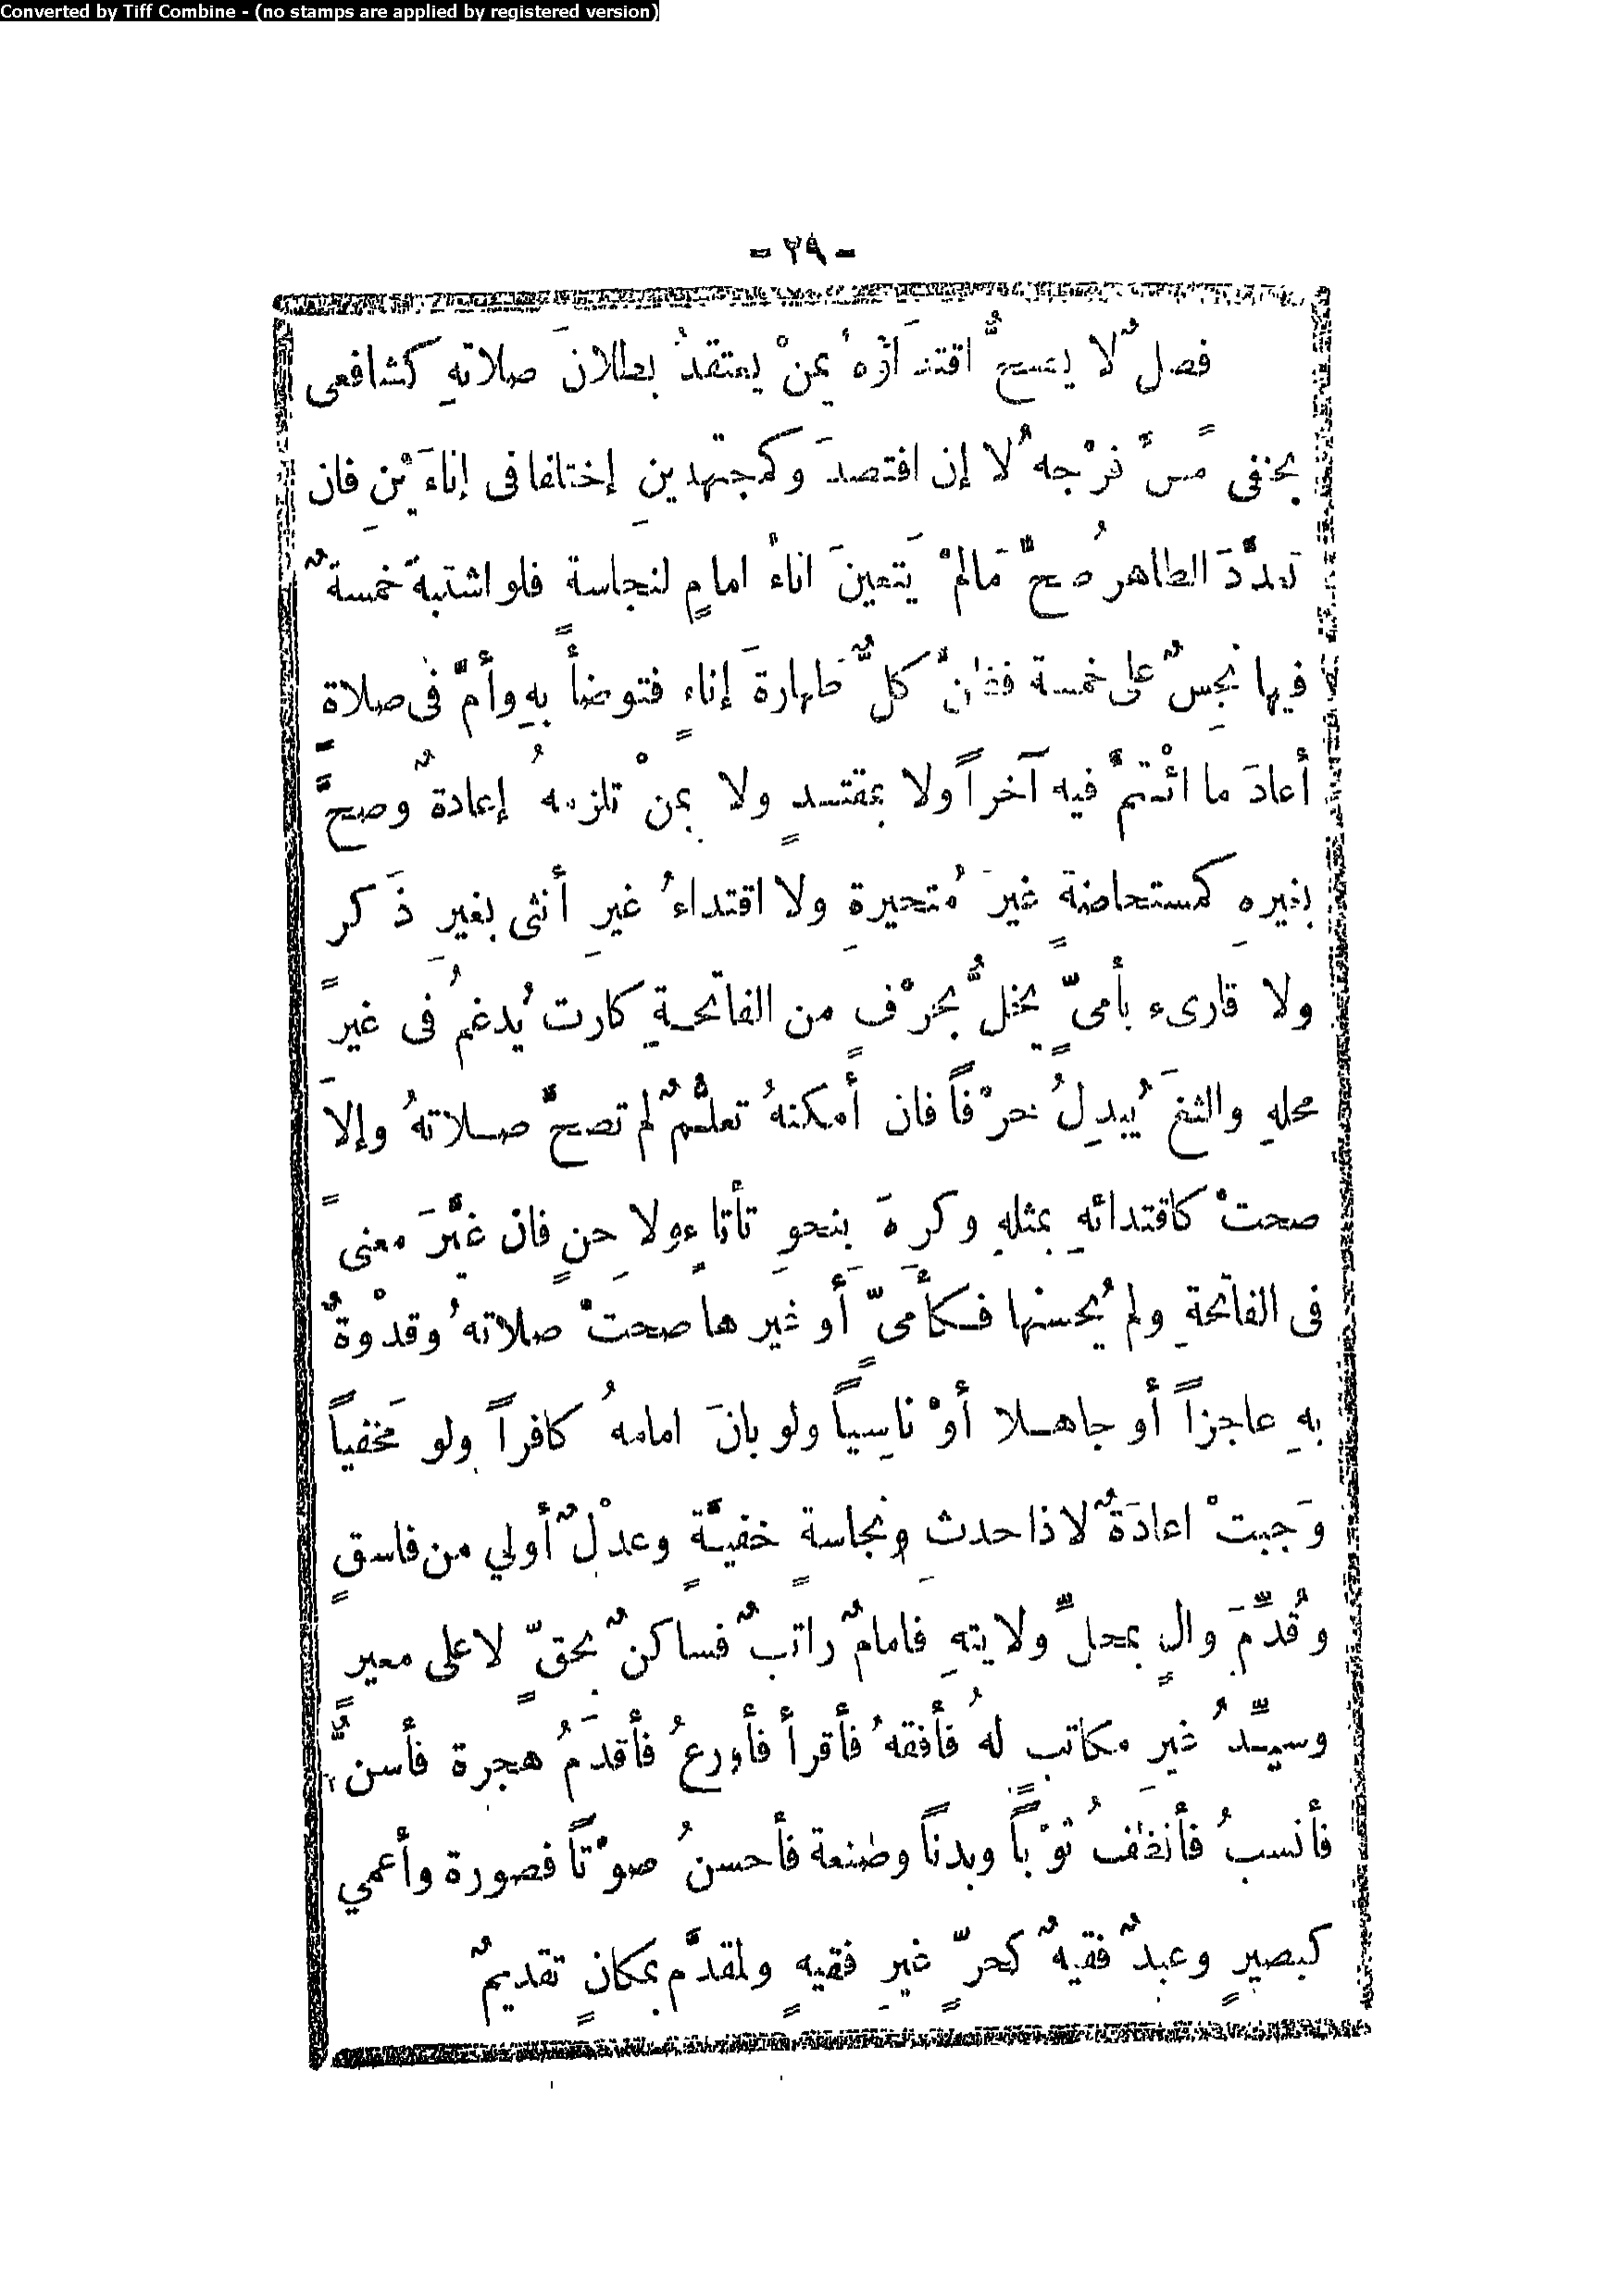 Converted by Tiff Combine - (no stamps are applied by registered version)
- ٢٩ -
فصلٌ لا يصحُّ اقتدَاؤهُ بمنْ يعتقدُ بطلانَ صلاتهِ كشافعى
بحنفى مسَّ فرْجهُ لا إن افتصدَ وكمجتهدينِ إختلفا فى إناءَيْنِ فان
تعدَّدَ الطاهرُ صحَّ مَالمْ يَتعينَ اناءُ امامٍ لنجاسةٍ فلو اشتبهَ خمسةٌ
فيها نَجِسٌ على خمسة فظنَّ كلٌّ طهارةَ إناءٍ فتوضأَ بهِ وأمَّ فى صلاةٍ
أعادَ ما ائْتمَّ فيه آخراً ولا بمقتدٍ ولا بمنْ تلزمهُ إعادةٌ وصحَّ
بغيرهِ كمستحاضةٍ غيرَ مُتحيرةِ ولا اقتداءُ غيرِ أنثى بغيرِ ذَكر
ولا قارىء بأمىٍّ يخلُّ بحرْفٍ من الفاتحةِ كارت يُدغمُ فى غيرِ
محلهِ والثغَ يُبدِلُ حرْفاً فان أمكنهُ تعلُّمٌ لم تصحَّ صلاتهُ وإلاَّ
صحتْ كاقتدائهِ بمثلهِ وكرِهَ بنحوِ تأتاءٍ ولاحِنٍ فان غيَّرَ معنىً
فى الفاتحةِ ولم يُحسنها فكأَمىٍّ أو غيرها صحتْ صلاتهُ وقدْوةٌ
بهِ عاجزاً أو جاهلا أوْ ناسِياً ولو بانَ امامهُ كافراً ولو مَخفياً
وَجبتْ اعادَةٌ لا ذا حدثِ ونجاسةٍ خفيَّةٍ وعدْلٌ أولي من فاسقٍ
وقُدِّمَ والٍ بمحلِّ ولايتهِ فامامٌ راتبٌ فساكنٌ بحقٍّ لا على معيرٍ
وسيِّدُ غيرِ مكاتبٍ لهُ فأفقهُ فأقرأُ فأورعُ فأقدَمُ هجرة فأسنُّ
فأنسبُ فأنظفُ ثوْباً وبدناً وصنعة فأحسنُ صوْتاً فصورة وأعمي
كبصيرٍ وعبدٌ فقيهٌ كحرٍّ غيرِ فقيهٍ ولمقدَّم بمكانٍ تقديمٌ